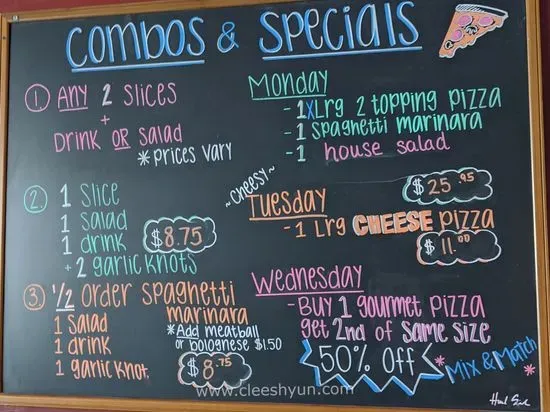 COMBOS & SPECIALS
1 ANY 2 SLICES
+
DRINK OR SALAD
*PRICES VARY
2 1 SLICE
1 SALAD
1 DRINK
+ 2 GARLIC KNOTS
$8.75
3 1/2 ORDER SPAGHETTI
MARINARA
1 SALAD
1 DRINK
1 GARLIC KNOT
*Add meatball
or bolognese $1.50
$8.75
MONDAY
- 1xLRG 2 TOPPING PIZZA
- 1 SPAGHETTI MARINARA
- 1 HOUSE SALAD
$25.95
~CHEESY~
TUESDAY
- 1 LRG CHEESE PIZZA
$11.00
WEDNESDAY
- BUY 1 GOURMET PIZZA
GET 2nd OF SAME SIZE
50% OFF
*MIX & MATCH*
www.cleeshyun.com